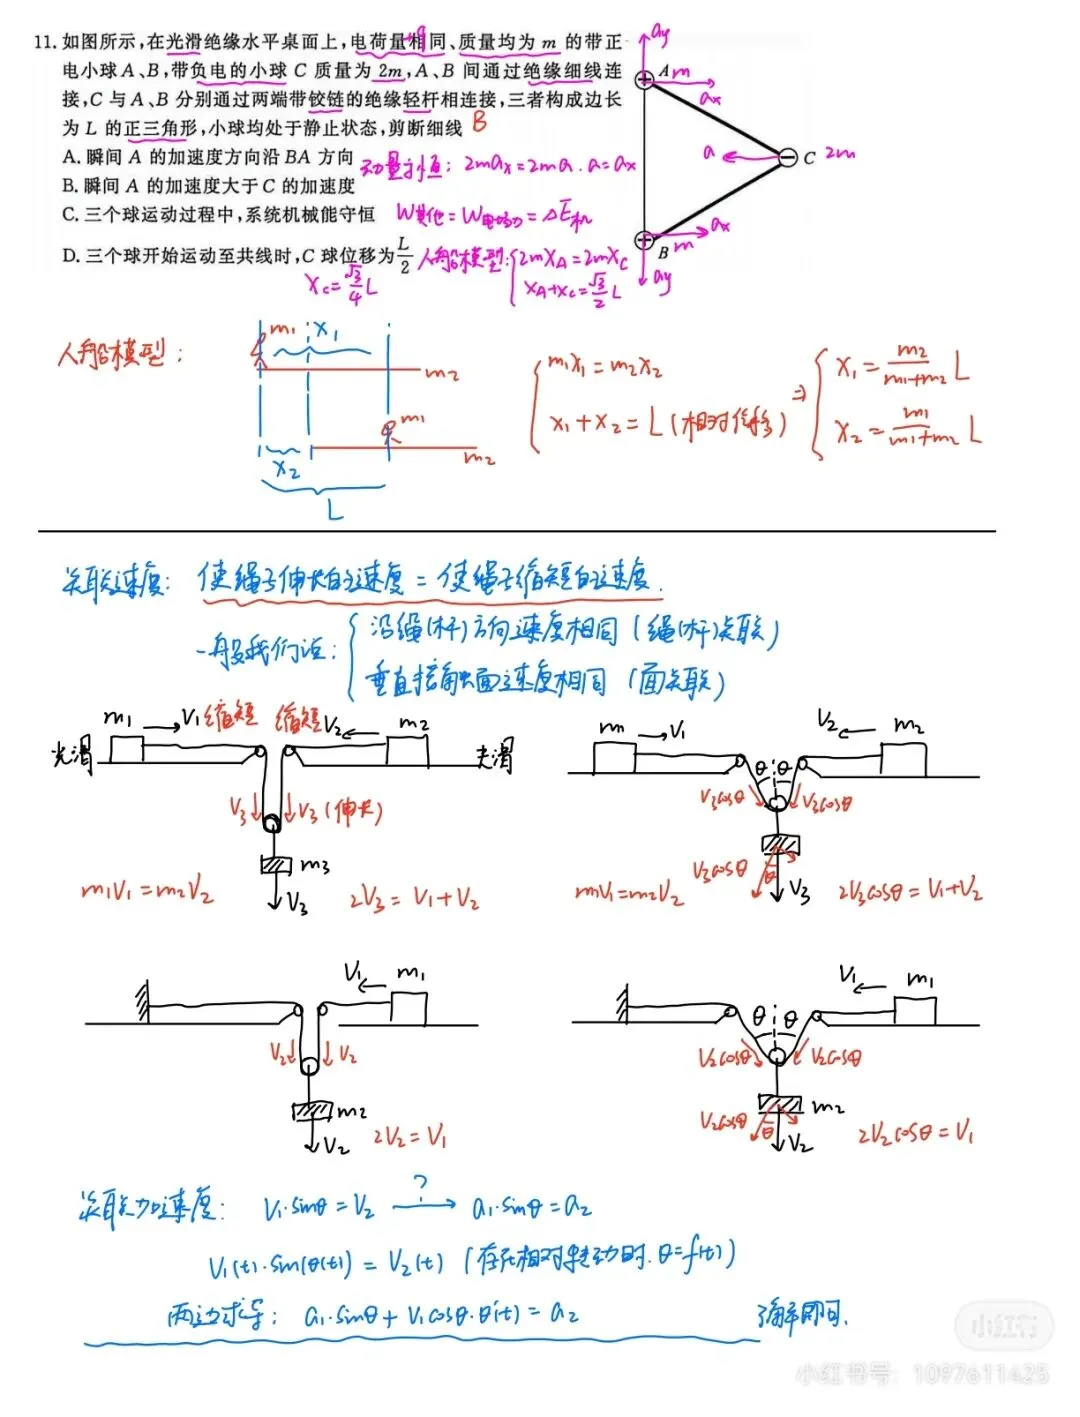 11. 如图所示,在光滑绝缘水平桌面上,电荷量相同、质量均为 m 的带正
电小球 A、B,带负电的小球 C 质量为 2m,A、B 间通过绝缘细线连
接,C 与 A、B 分别通过两端带铰链的绝缘轻杆相连接,三者构成边长
为 L 的正三角形,小球均处于静止状态,剪断细线 B
A. 瞬间 A 的加速度方向沿 BA 方向 动量守恒: 2max=2ma. a=ax
B. 瞬间 A 的加速度大于 C 的加速度
C. 三个球运动过程中,系统机械能守恒 W其他=W电场力=ΔE机
D. 三个球开始运动至共线时,C 球位移为 L/2 人船模型: { 2mXA=2mXC
XA+XC=√3/2 L
XC=√3/4 L
ay
+ A m
ax
a
C 2m
+ B m
ax
ay
人船模型:
m1 X1
m2
m1
m2
X2
L
m1X1=m2X2
X1+X2=L(相对位移)
⇒
X1=m2/(m1+m2) L
X2=m1/(m1+m2) L
关联速度: 使绳子伸长的速度=使绳子缩短的速度.
一般我们说: { 沿绳(杆)方向速度相同(绳(杆)关联)
垂直接触面速度相同(面关联)
m1 V1 缩短 缩短 V2 m2
光滑 光滑
V3 V3(伸长)
m3
V3
m1V1=m2V2 2V3=V1+V2
m V1 V2 m2
θ θ
V3cosθ V3cosθ
V3cosθ θ
V3
mV1=m2V2 2V3cosθ=V1+V2
V1 m1
V2 V2
m2
V2 2V2=V1
V1 m1
θ θ
V2cosθ V2cosθ
V2cosθ θ m2
V2 2V2cosθ=V1
关联加速度: V1·sinθ=V2 ?→ a1·sinθ=a2
V1(t)·sin(θ(t))=V2(t) (存在相对转动时.θ=f(t))
两边求导: a1·sinθ+V1cosθ·θ'(t)=a2 了解即可.
小红书
小红书号: 1097611425